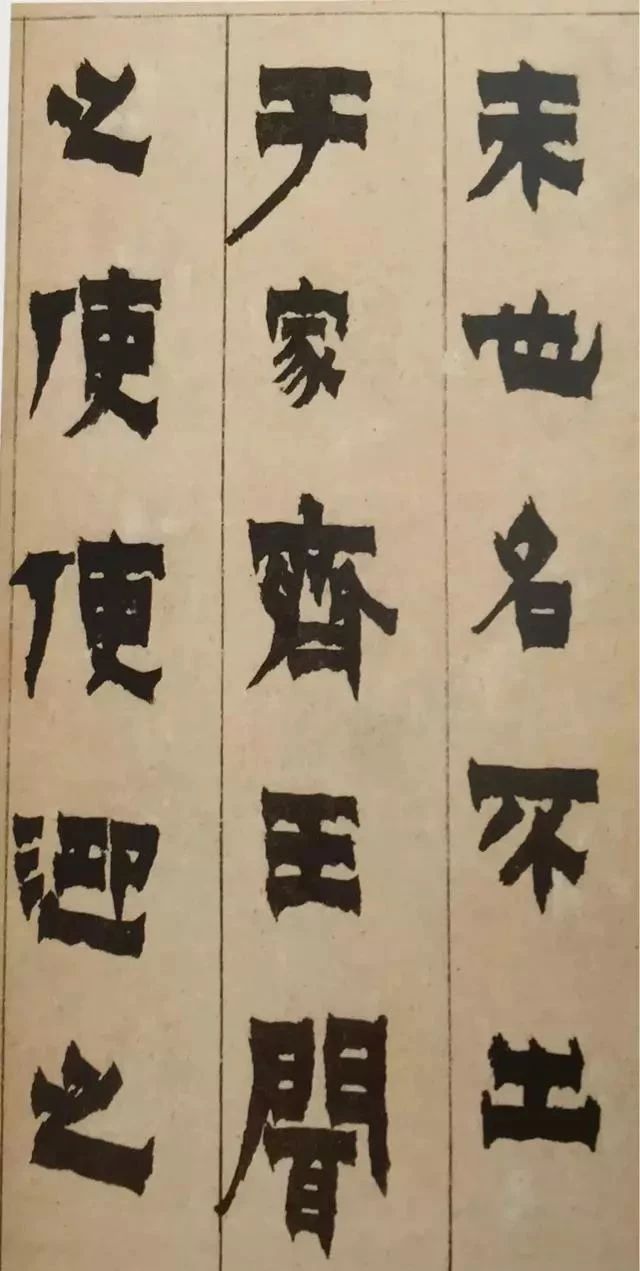 末也名不出
于家齊王聞
之使使迎之